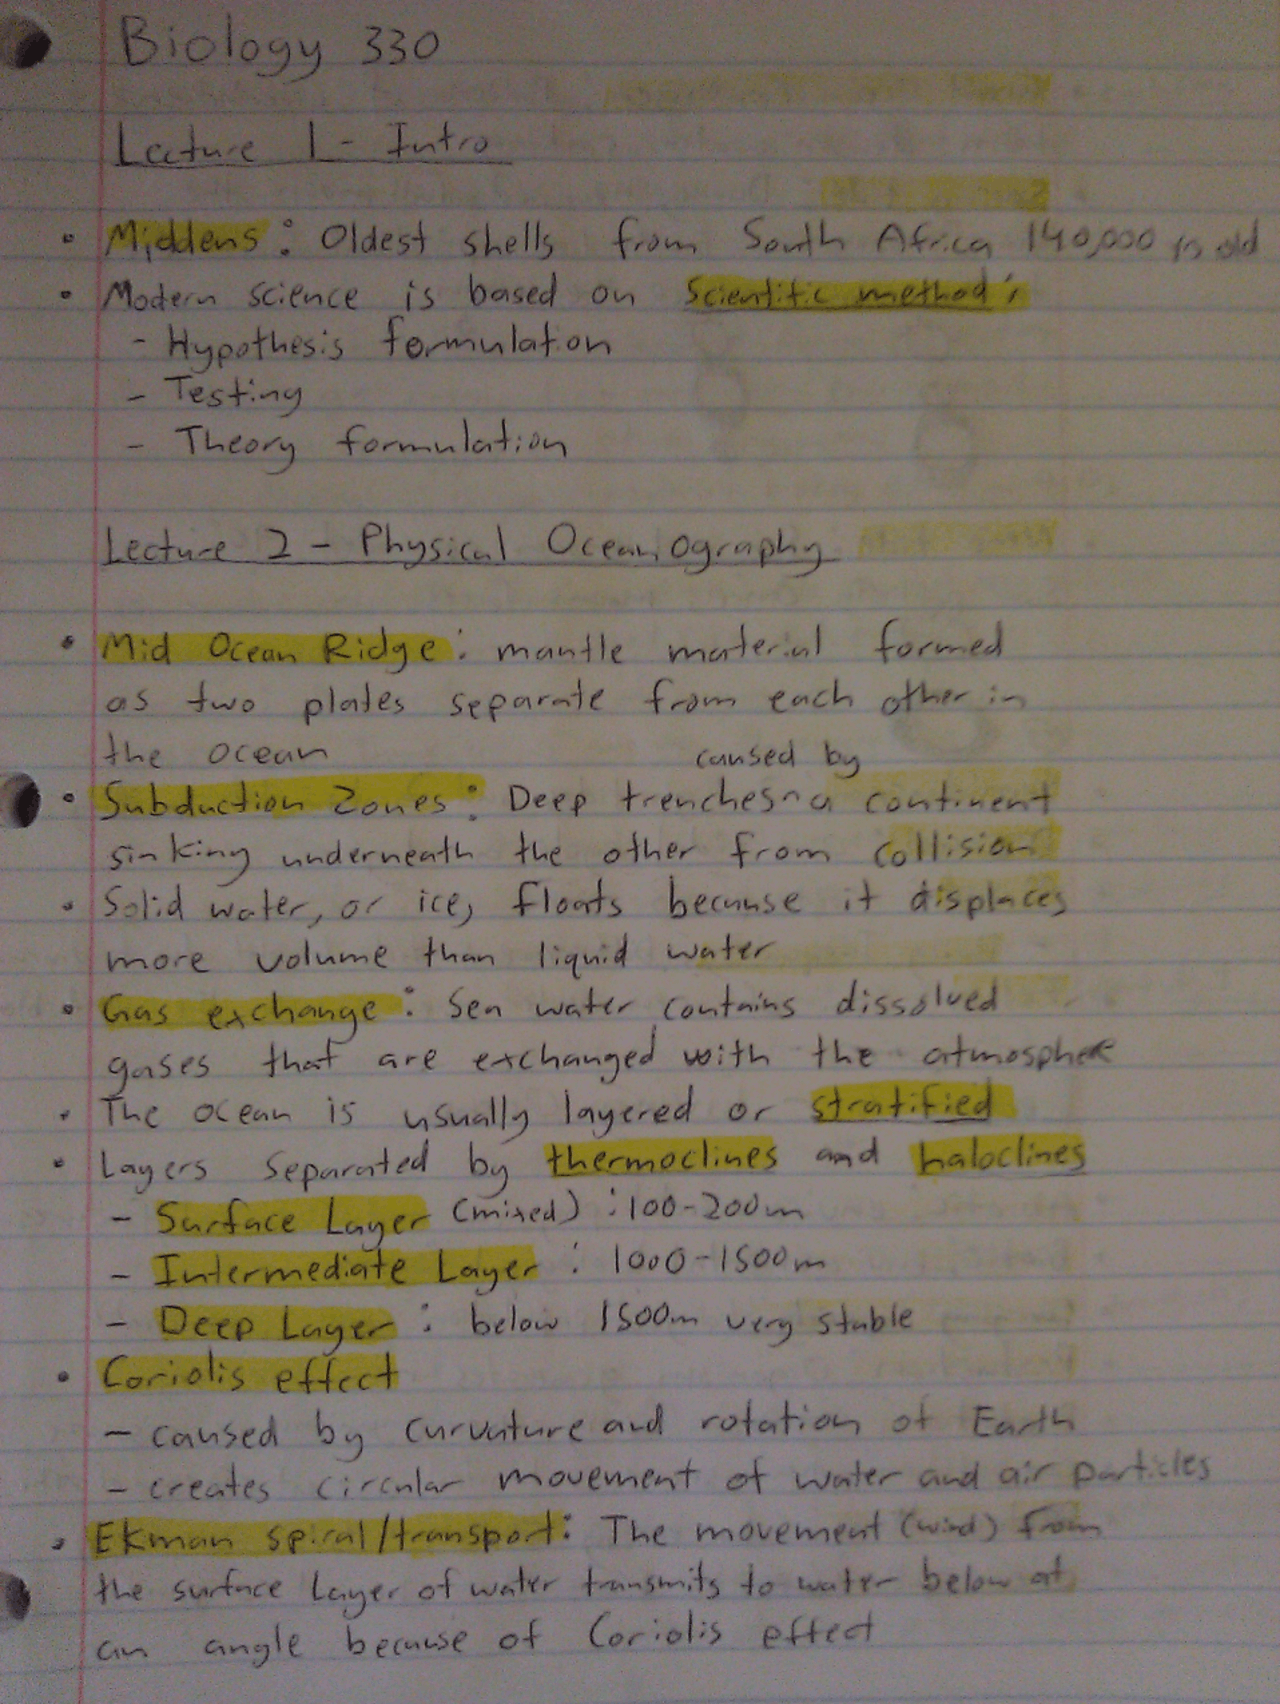 Biology 330
Lecture 1 - Intro
• Middens: Oldest shells from South Africa 140,000 yrs old
• Modern science is based on scientific method:
- Hypothesis formulation
- Testing
- Theory formulation
Lecture 2 - Physical Oceanography
• Mid Ocean Ridge: mantle material formed
as two plates separate from each other in
the ocean
caused by
• Subduction Zones: Deep trenches ^ a continent
sinking underneath the other from collision
• Solid water, or ice, floats because it displaces
more volume than liquid water
• Gas exchange: Sea water contains dissolved
gases that are exchanged with the atmosphere
• The ocean is usually layered or stratified
• Layers separated by thermoclines and haloclines
- Surface Layer (mixed): 100-200m
- Intermediate Layer: 1000-1500m
- Deep Layer: below 1500m very stable
• Coriolis effect
- caused by curvature and rotation of Earth
- creates circular movement of water and air particles
• Ekman spiral/transport: The movement (wind) from
the surface layer of water transmits to water below at
an angle because of Coriolis effect